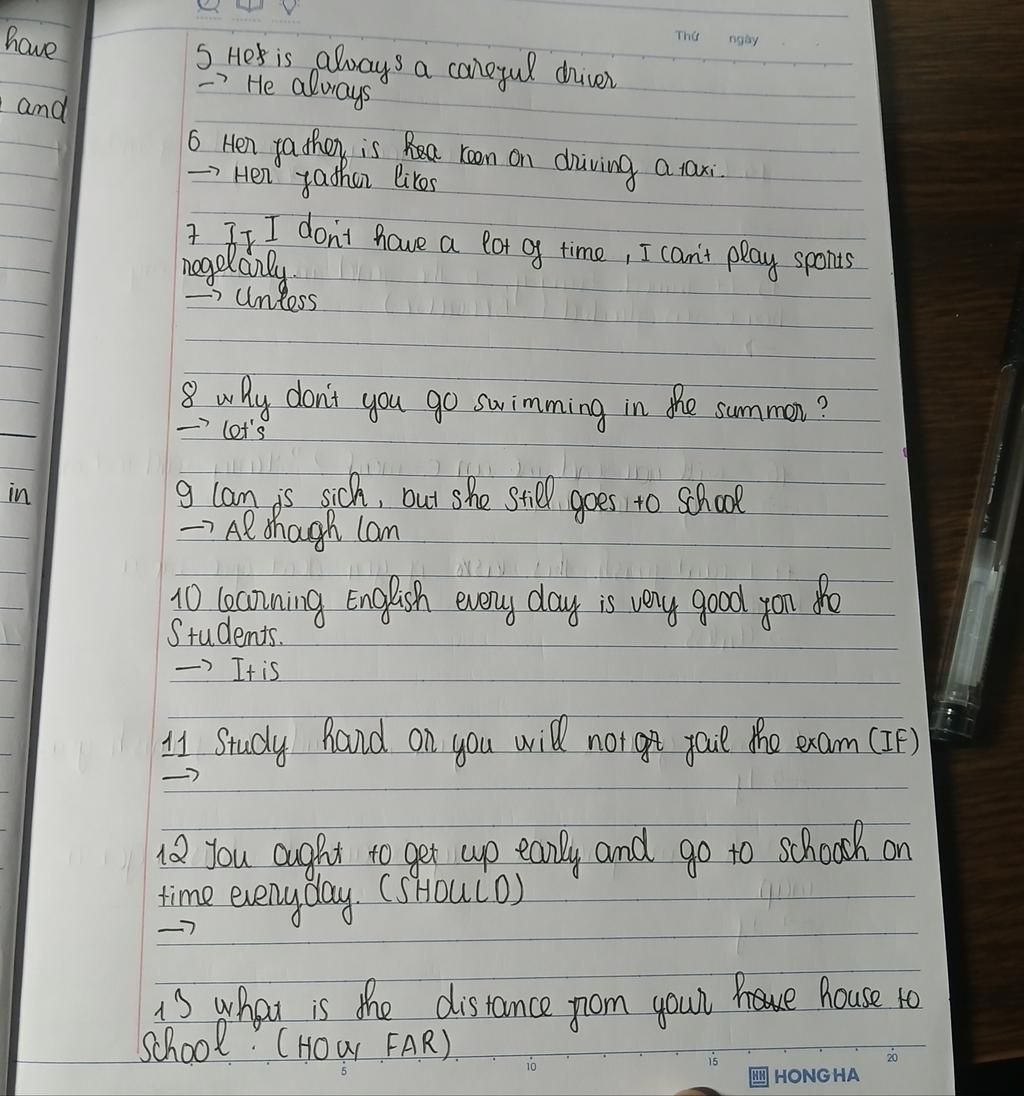 have
and
in
Thứ ngày
5 He is always a careful driver
→ He always
6 Her father is keen on driving a taxi.
→ Her father likes
7 If I don't have a lot of time, I can't play sports
regelarly.
→ Unless
8 why don't you go swimming in the summer?
→ Let's
9 Lan is sich, but she still goes to school
→ Althagh Lan
10 Learning English every day is very good for the
Students.
→ It is
11 Study hard or you will not fail the exam (IF)
→
12 You ought to get up early and go to schooh on
time everyday. (SHOULD)
→
13 what is the distance from your house to
School. (HOW FAR)
5 10 15 20
HH HONG HA